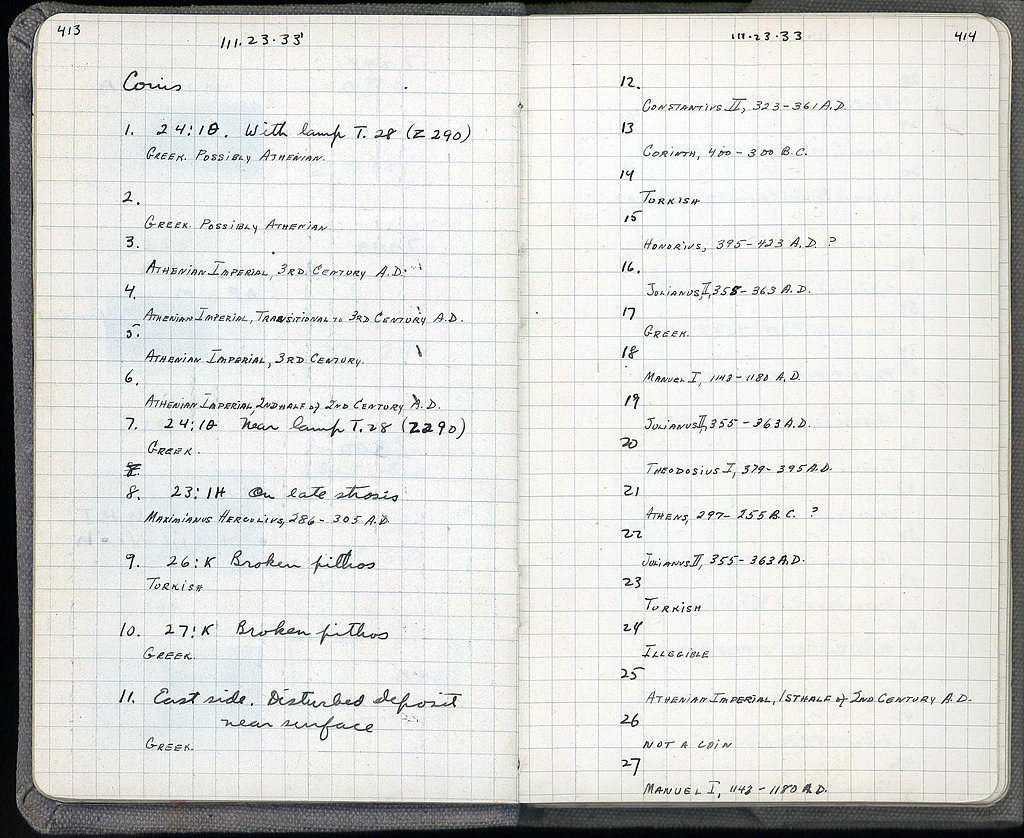 413
111.23.33
Coins
1. 24:1Θ. With lamp T. 28 (Z 290)
GREEK. POSSIBLY ATHENIAN.
2.
GREEK. POSSIBLY ATHENIAN
3.
ATHENIAN IMPERIAL, 3RD CENTURY A.D.
4.
ATHENIAN IMPERIAL, TRANSITIONAL TO 3RD CENTURY A.D.
5.
ATHENIAN IMPERIAL, 3RD CENTURY.
6.
ATHENIAN IMPERIAL, 2ND HALF of 2ND CENTURY A.D.
7. 24:1Θ Near lamp T. 28 (Z290)
GREEK.
8. 23:1H On late strosis
MAXIMIANUS HERCULIUS, 286-305 A.D.
9. 26:K Broken pithos
TURKISH
10. 27:K Broken pithos
GREEK.
11. East side. Disturbed deposit
near surface
GREEK.
111.23.33
414
12.
CONSTANTIUS II, 323-361 A.D.
13
CORINTH, 400-300 B.C.
14
TURKISH
15
HONORIUS, 395-423 A.D. ?
16.
JULIANUS II, 355-363 A.D.
17
GREEK.
18
MANUEL I, 1143-1180 A.D.
19
JULIANUS II, 355-363 A.D.
20
THEODOSIUS I, 379-395 A.D.
21
ATHENS, 297-255 B.C. ?
22
JULIANUS II, 355-363 A.D.
23
TURKISH
24
ILLEGIBLE
25
ATHENIAN IMPERIAL, 1ST HALF of 2ND CENTURY A.D.
26
NOT A COIN
27
MANUEL I, 1143-1180 A.D.